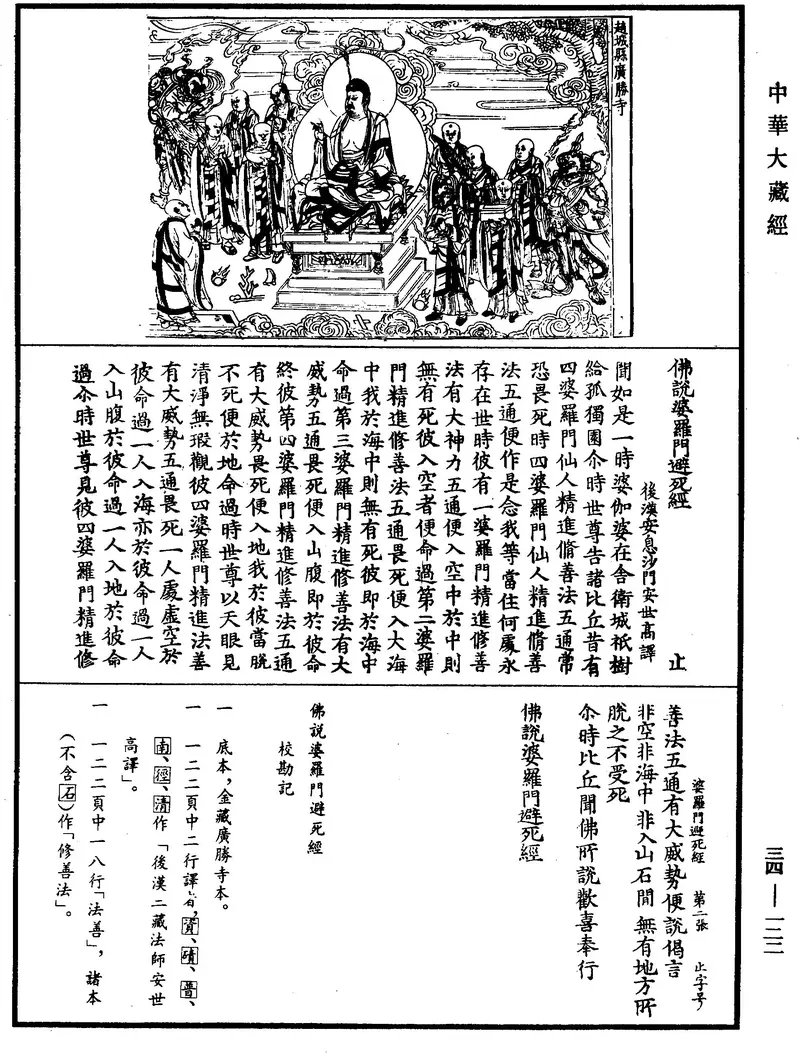 中華大藏經
趙城縣廣勝寺
佛說婆羅門避死經 止
後漢安息沙門安世高譯
聞如是一時婆伽婆在舍衛城祇樹
給孤獨園尒時世尊告諸比丘昔有
四婆羅門仙人精進脩善法五通常
恐畏死時四婆羅門仙人精進脩善
法五通便作是念我等當住何處永
存在世時彼有一婆羅門精進修善
法有大神力五通便入空中於中則
無有死彼入空者便命過第二婆羅
門精進修善法五通畏死便入大海
中我於海中則無有死彼即於海中
命過第三婆羅門精進修善法有大
威勢五通畏死便入山腹即於彼命
終彼第四婆羅門精進修善法五通
有大威勢畏死便入地我於彼當脫
不死便於地命過時世尊以天眼見
清淨無瑕觀彼四婆羅門精進法善
有大威勢五通畏死一人處虛空於
彼命過一人入海亦於彼命過一人
入山腹於彼命過一人入地於彼命
過尒時世尊見彼四婆羅門精進修
婆羅門避死經 第二張 止字号
善法五通有大威勢便說偈言
非空非海中 非入山石間 無有地方所
脫之不受死
尒時比丘聞佛所說歡喜奉行
佛說婆羅門避死經
佛說婆羅門避死經
校勘記
一 底本，金藏廣勝寺本。
一 一二二頁中二行譯者，資、磧、普、
南、徑、清作「後漢三藏法師安世
高譯」。
一 一二二頁中一八行「法善」，諸本
（不含石）作「修善法」。
三四—一二二